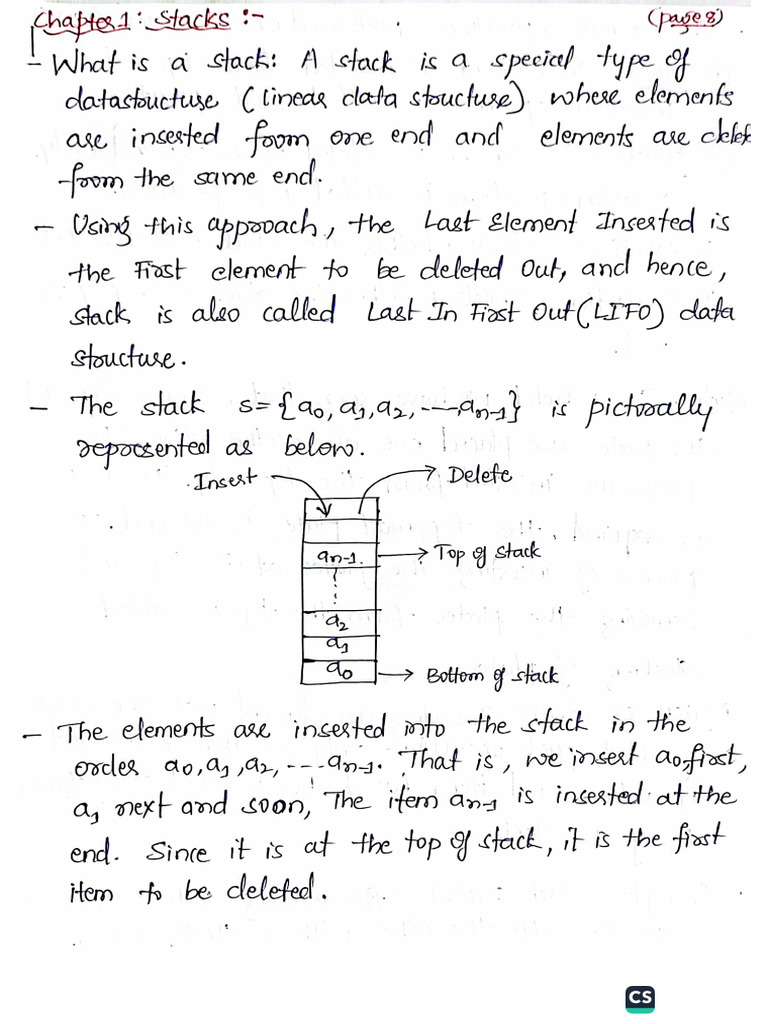 Chapter 1: Stacks :- (page 8)
- What is a stack: A stack is a special type of
datastructure (linear data structure) where elements
are inserted from one end and elements are delet
from the same end.
- Using this approach, the Last Element Inserted is
the First element to be deleted Out, and hence,
stack is also called Last In First Out (LIFO) data
structure.
- The stack s={a0, a1, a2, ---, an-1} is pictorally
represented as below.
Insert Delete
an-1. Top of stack
a2
a1
a0 Bottom of stack
- The elements are inserted into the stack in the
order a0, a1, a2, --- an-1. That is, we insert a0 first,
a1 next and soon, The item an-1 is inserted at the
end. Since it is at the top of stack, it is the first
item to be deleted.
CS